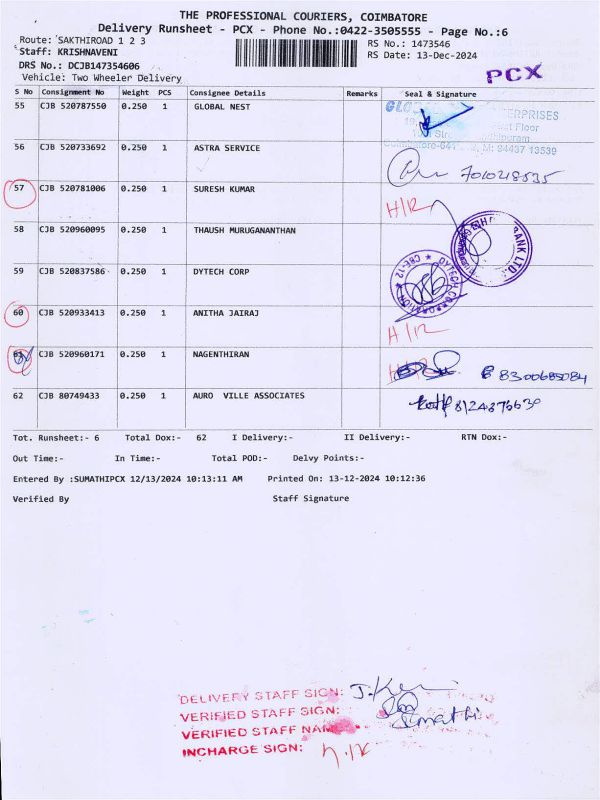 THE PROFESSIONAL COURIERS, COIMBATORE
Delivery Runsheet - PCX - Phone No.:0422-3505555 - Page No.:6
Route: SAKTHIROAD 1 2 3
RS No.: 1473546
Staff: KRISHNAVENI
RS Date: 13-Dec-2024
DRS No.: DCJB147354606
PCX
Vehicle: Two Wheeler Delivery
S No Consignment No Weight PCS Consignee Details Remarks Seal & Signature
55 CJB 520787550 0.250 1 GLOBAL NEST
ERPRISES
Floor
M: 94437 13539
56 CJB 520733692 0.250 1 ASTRA SERVICE
7010218535
57 CJB 520781006 0.250 1 SURESH KUMAR
H/R
58 CJB 520960095 0.250 1 THAUSH MURUGANANTHAN
BANK LTD.
59 CJB 520837586 0.250 1 DYTECH CORP
DYTECH CORPORATION * CBE-12 *
60 CJB 520933413 0.250 1 ANITHA JAIRAJ
H/R
61 CJB 520960171 0.250 1 NAGENTHIRAN
8300685084
62 CJB 80749433 0.250 1 AURO VILLE ASSOCIATES
Tot. Runsheet:- 6 Total Dox:- 62 I Delivery:- II Delivery:- RTN Dox:-
Out Time:- In Time:- Total POD:- Delvy Points:-
Entered By :SUMATHIPCX 12/13/2024 10:13:11 AM Printed On: 13-12-2024 10:12:36
Verified By Staff Signature
DELIVERY STAFF SIGN:
VERIFIED STAFF SIGN:
Sumathi
VERIFIED STAFF NAME
INCHARGE SIGN: